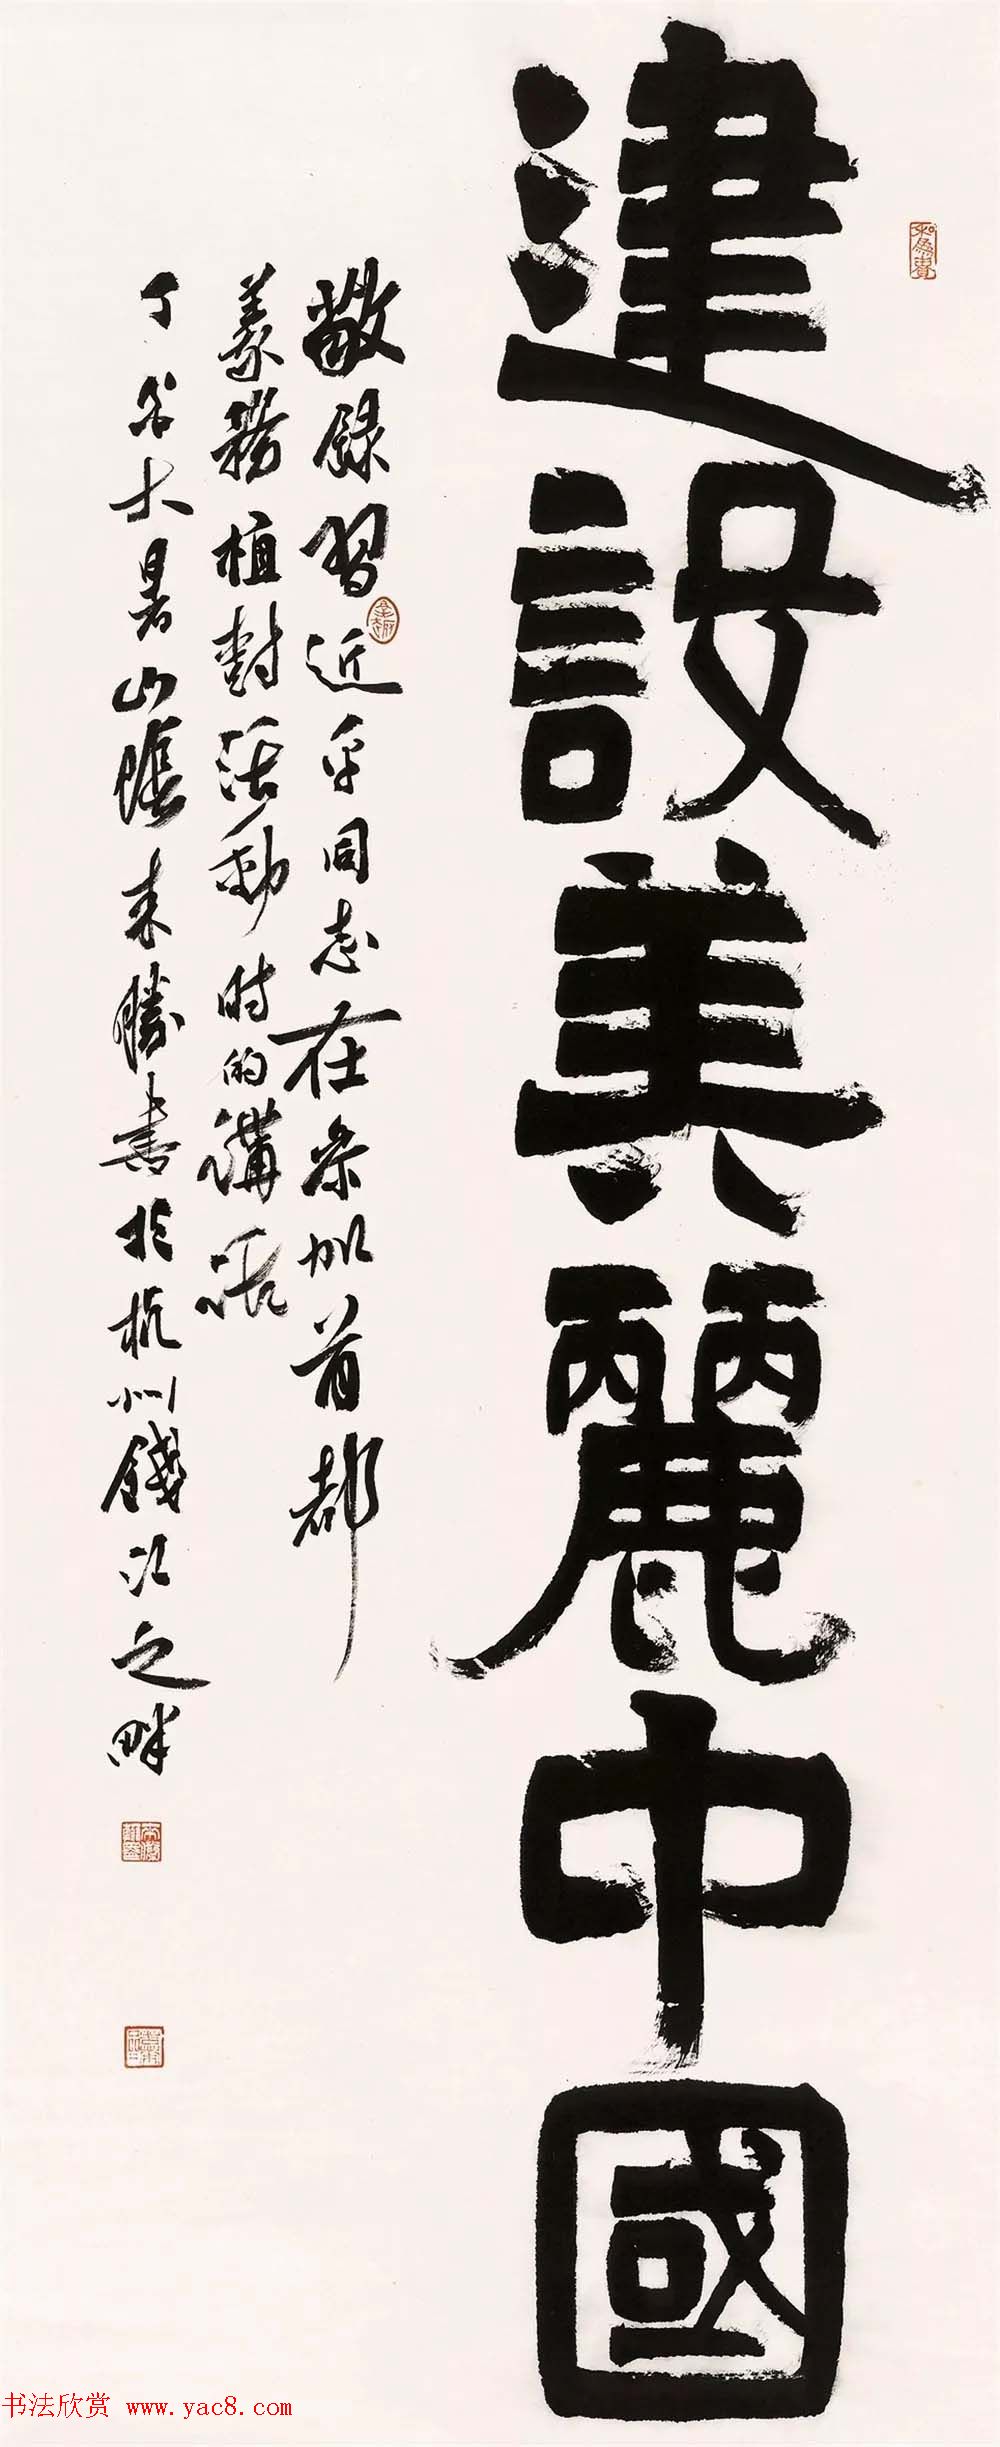 建設美麗中國
敬録習近平同志在參加首都
義務植樹活動時的講話
丁酉大暑山陰来勝書於杭州錢江之畔
和為貴
书法欣赏 www.yac8.com